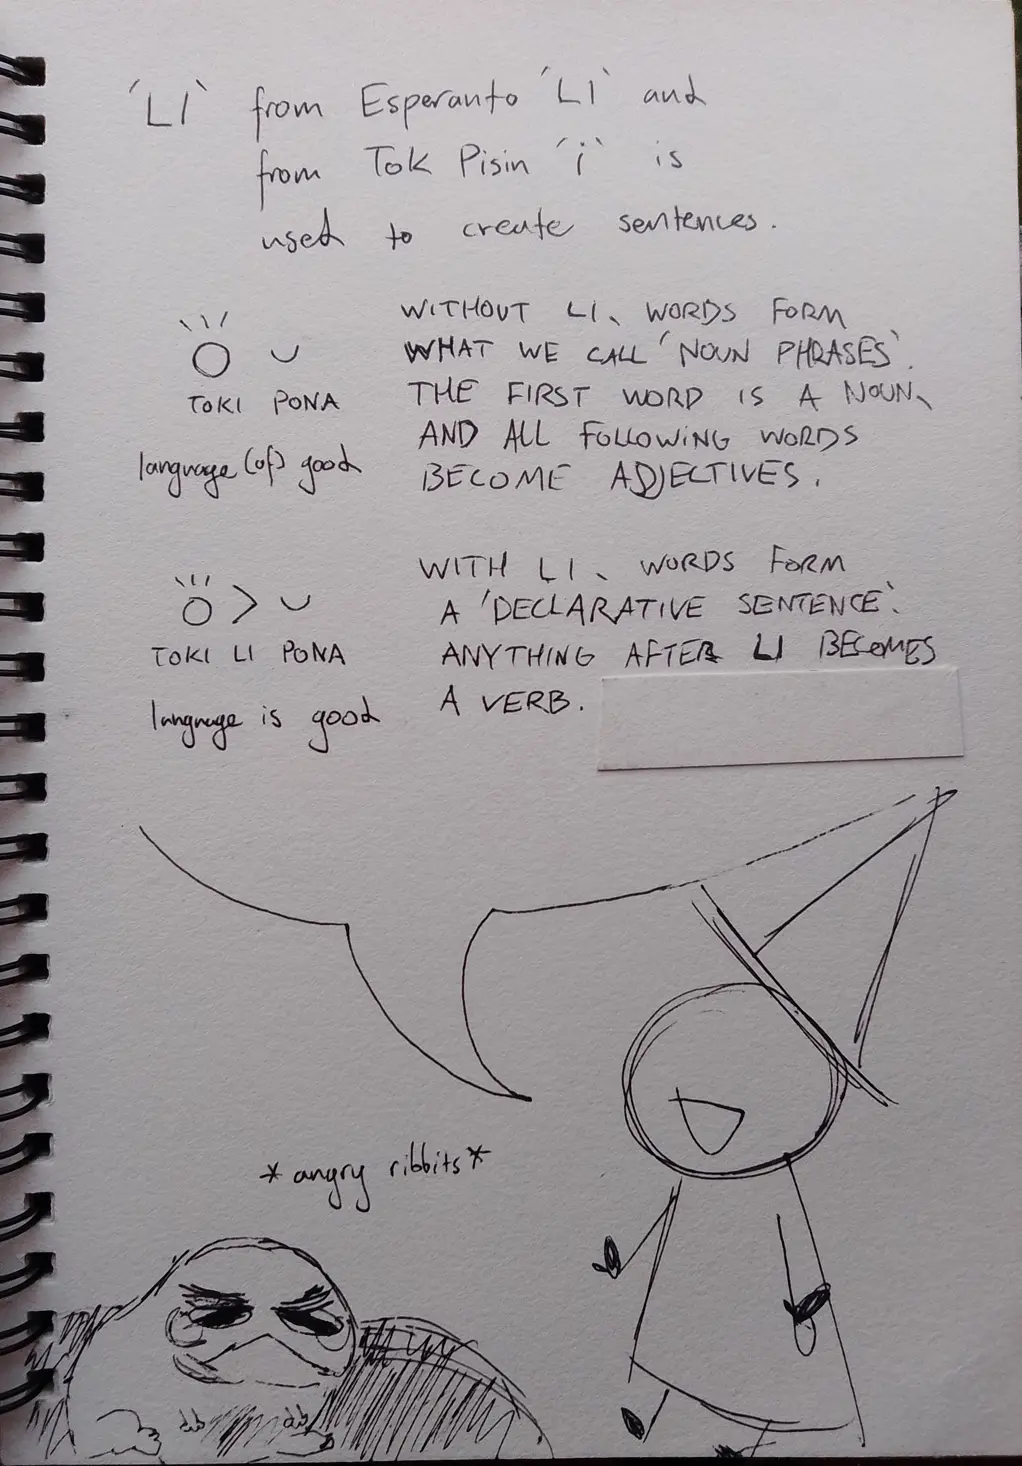 'LI' from Esperanto 'LI' and
from Tok Pisin 'i' is
used to create sentences.
TOKI PONA
language (of) good
WITHOUT LI, WORDS FORM
WHAT WE CALL 'NOUN PHRASES'.
THE FIRST WORD IS A NOUN,
AND ALL FOLLOWING WORDS
BECOME ADJECTIVES.
TOKI LI PONA
language is good
WITH LI, WORDS FORM
A 'DECLARATIVE SENTENCE'.
ANYTHING AFTER LI BECOMES
A VERB.
*angry ribbits*